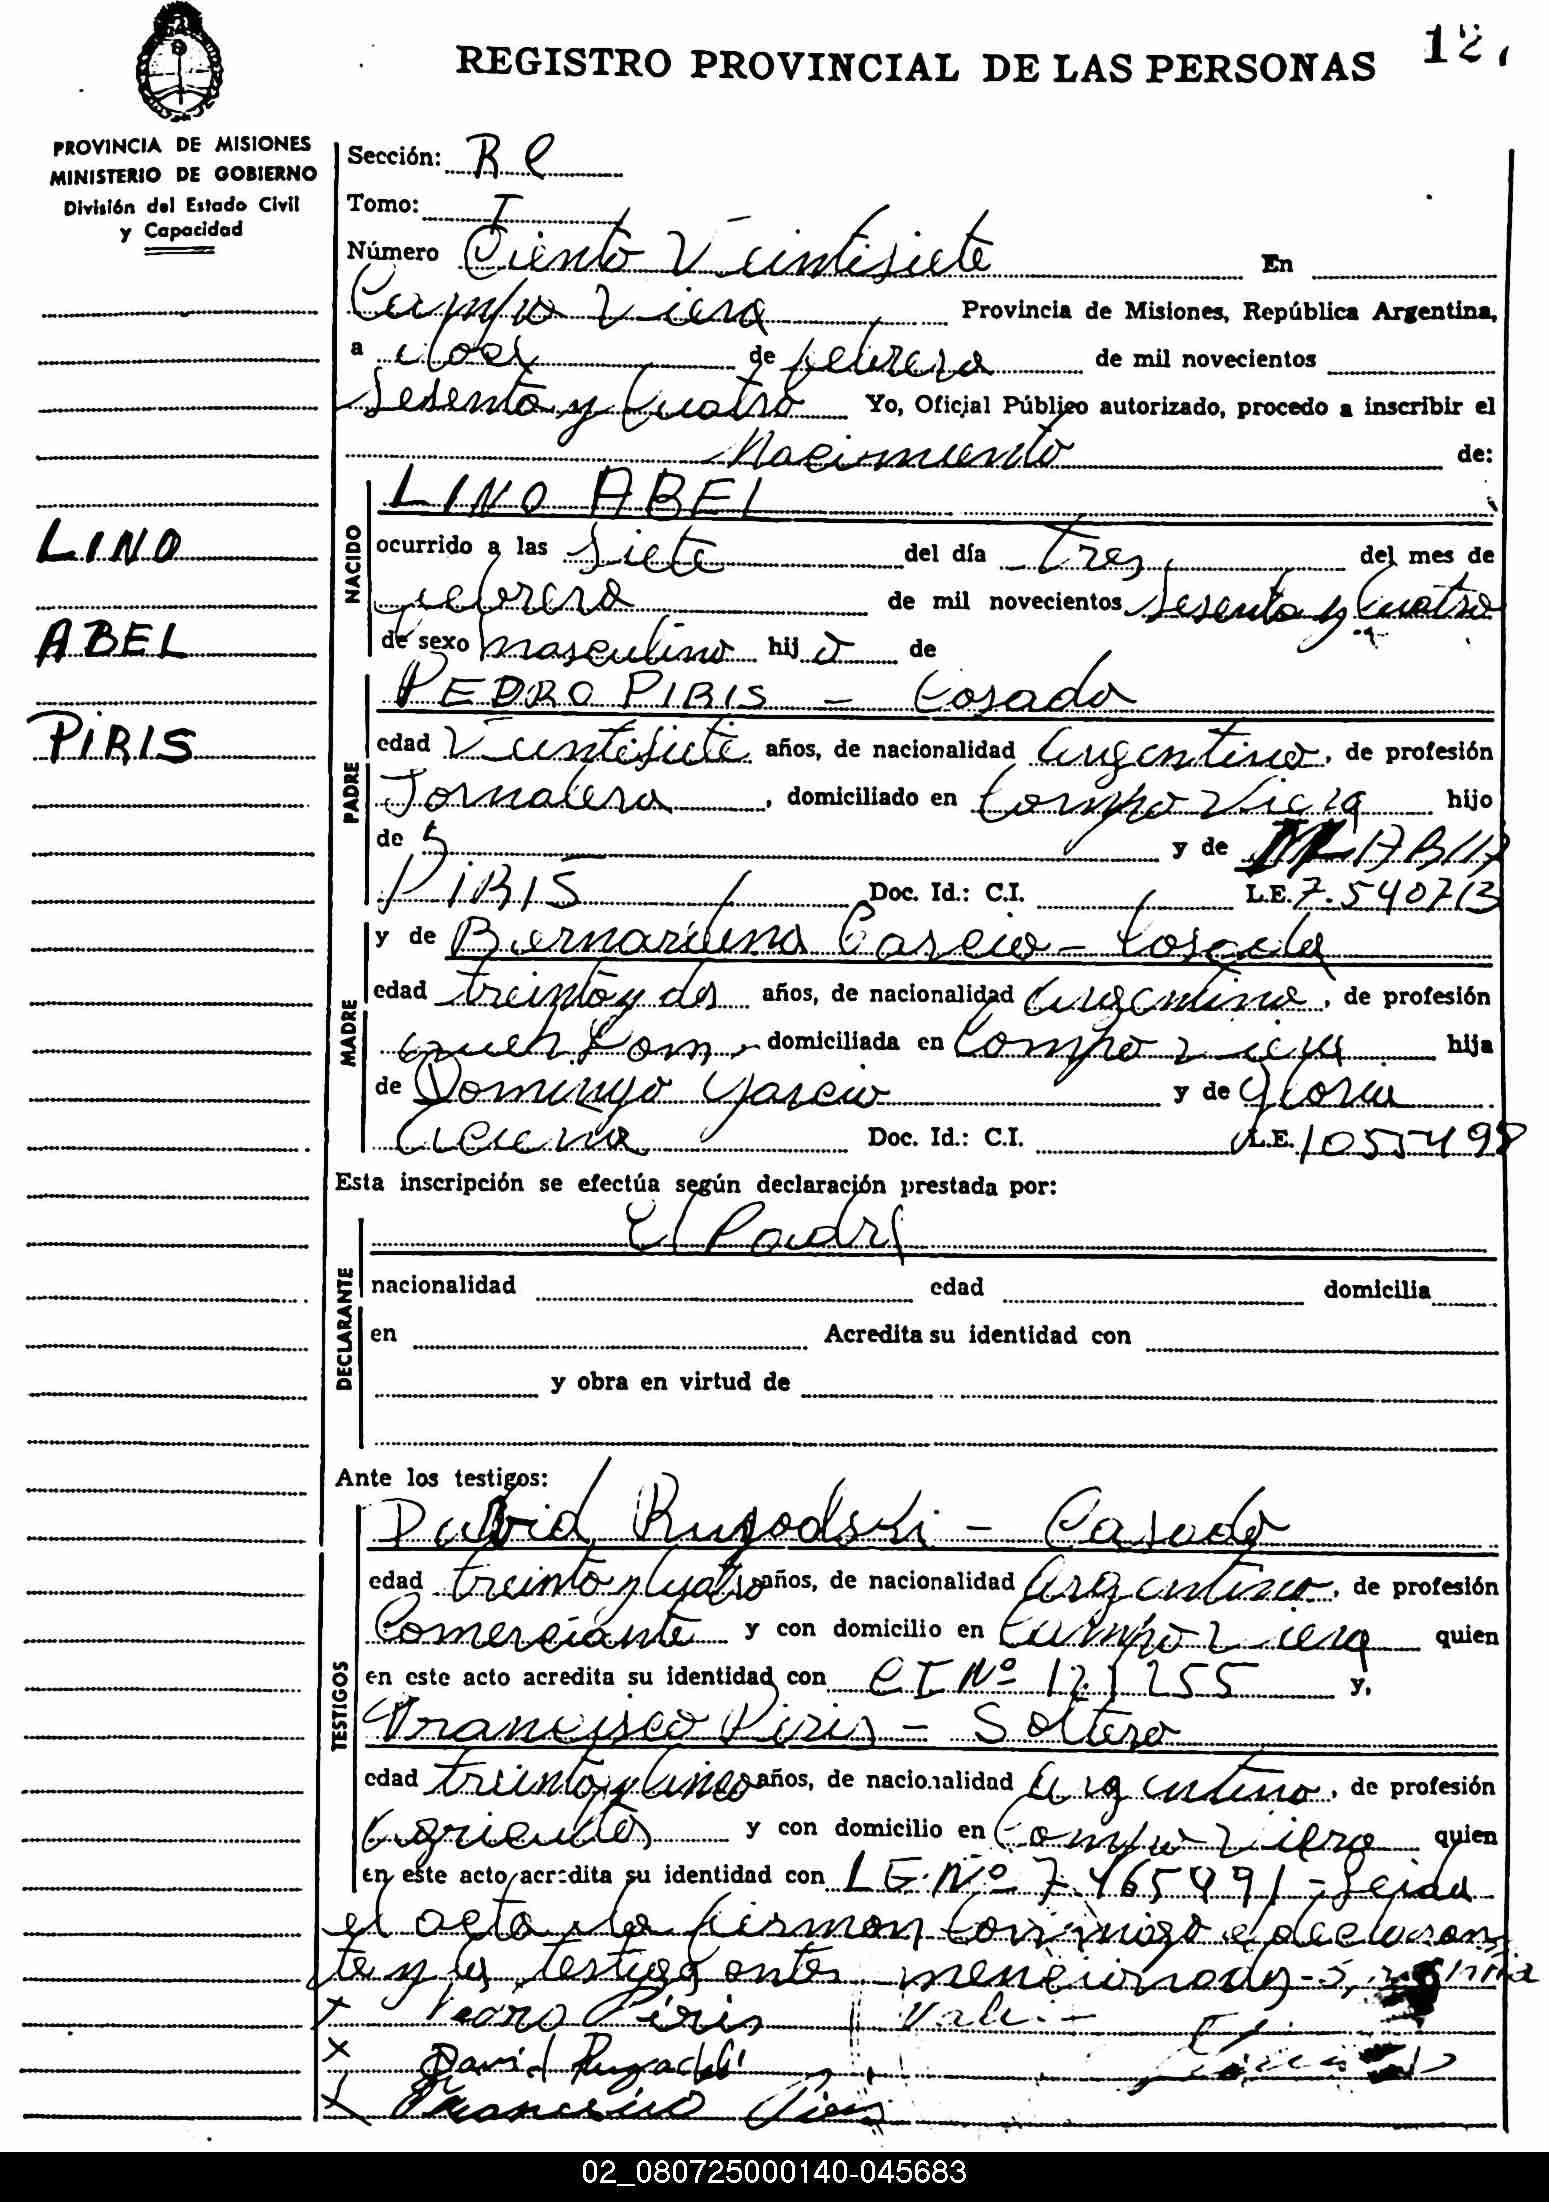 REGISTRO PROVINCIAL DE LAS PERSONAS
PROVINCIA DE MISIONES
MINISTERIO DE GOBIERNO
División del Estado Civil
y Capacidad
LINO
ABEL
PIRIS
Sección: R C
Tomo: I
Número Ciento Veintisiete En
Campo Viera Provincia de Misiones, República Argentina,
a de febrero de mil novecientos
Sesenta y Cuatro Yo, Oficial Público autorizado, procedo a inscribir el
Nacimiento de:
NACIDO
LINO ABEL
ocurrido a las Siete del día tres del mes de
febrero de mil novecientos Sesenta y Cuatro
de sexo masculino hijo de
PADRE
PEDRO PIRIS - Casado
edad Veintisiete años, de nacionalidad Argentino, de profesión
Jornalero, domiciliado en Campo Viera hijo
de y de
PIRIS Doc. Id.: C.I. L.E. 7.540713
MADRE
y de Bernardina Garcia - Casada
edad treinta y dos años, de nacionalidad Argentina, de profesión
domiciliada en Campo Viera hija
de Domingo Garcia y de Gloria
Doc. Id.: C.I. L.E. 1055498
Esta inscripción se efectúa según declaración prestada por:
DECLARANTE
El Padre
nacionalidad edad domicilia
en Acredita su identidad con
y obra en virtud de
Ante los testigos:
TESTIGOS
David - Casado
edad treinta y Cuatro años, de nacionalidad Argentino, de profesión
Comerciante y con domicilio en Campo Viera quien
en este acto acredita su identidad con CI Nº 121255 y,
Francisco Piris - Soltero
edad treinta y Cinco años, de nacionalidad Argentino, de profesión
Agricultor y con domicilio en Campo Viera quien
en este acto acredita su identidad con LE. Nº 7.465491 - Leida
el acta la firman Conmigo el declaran
te y los testigos antes mencionados -
X Pedro Piris Vale. -
X David
X Francisco Piris
02_080725000140-045683